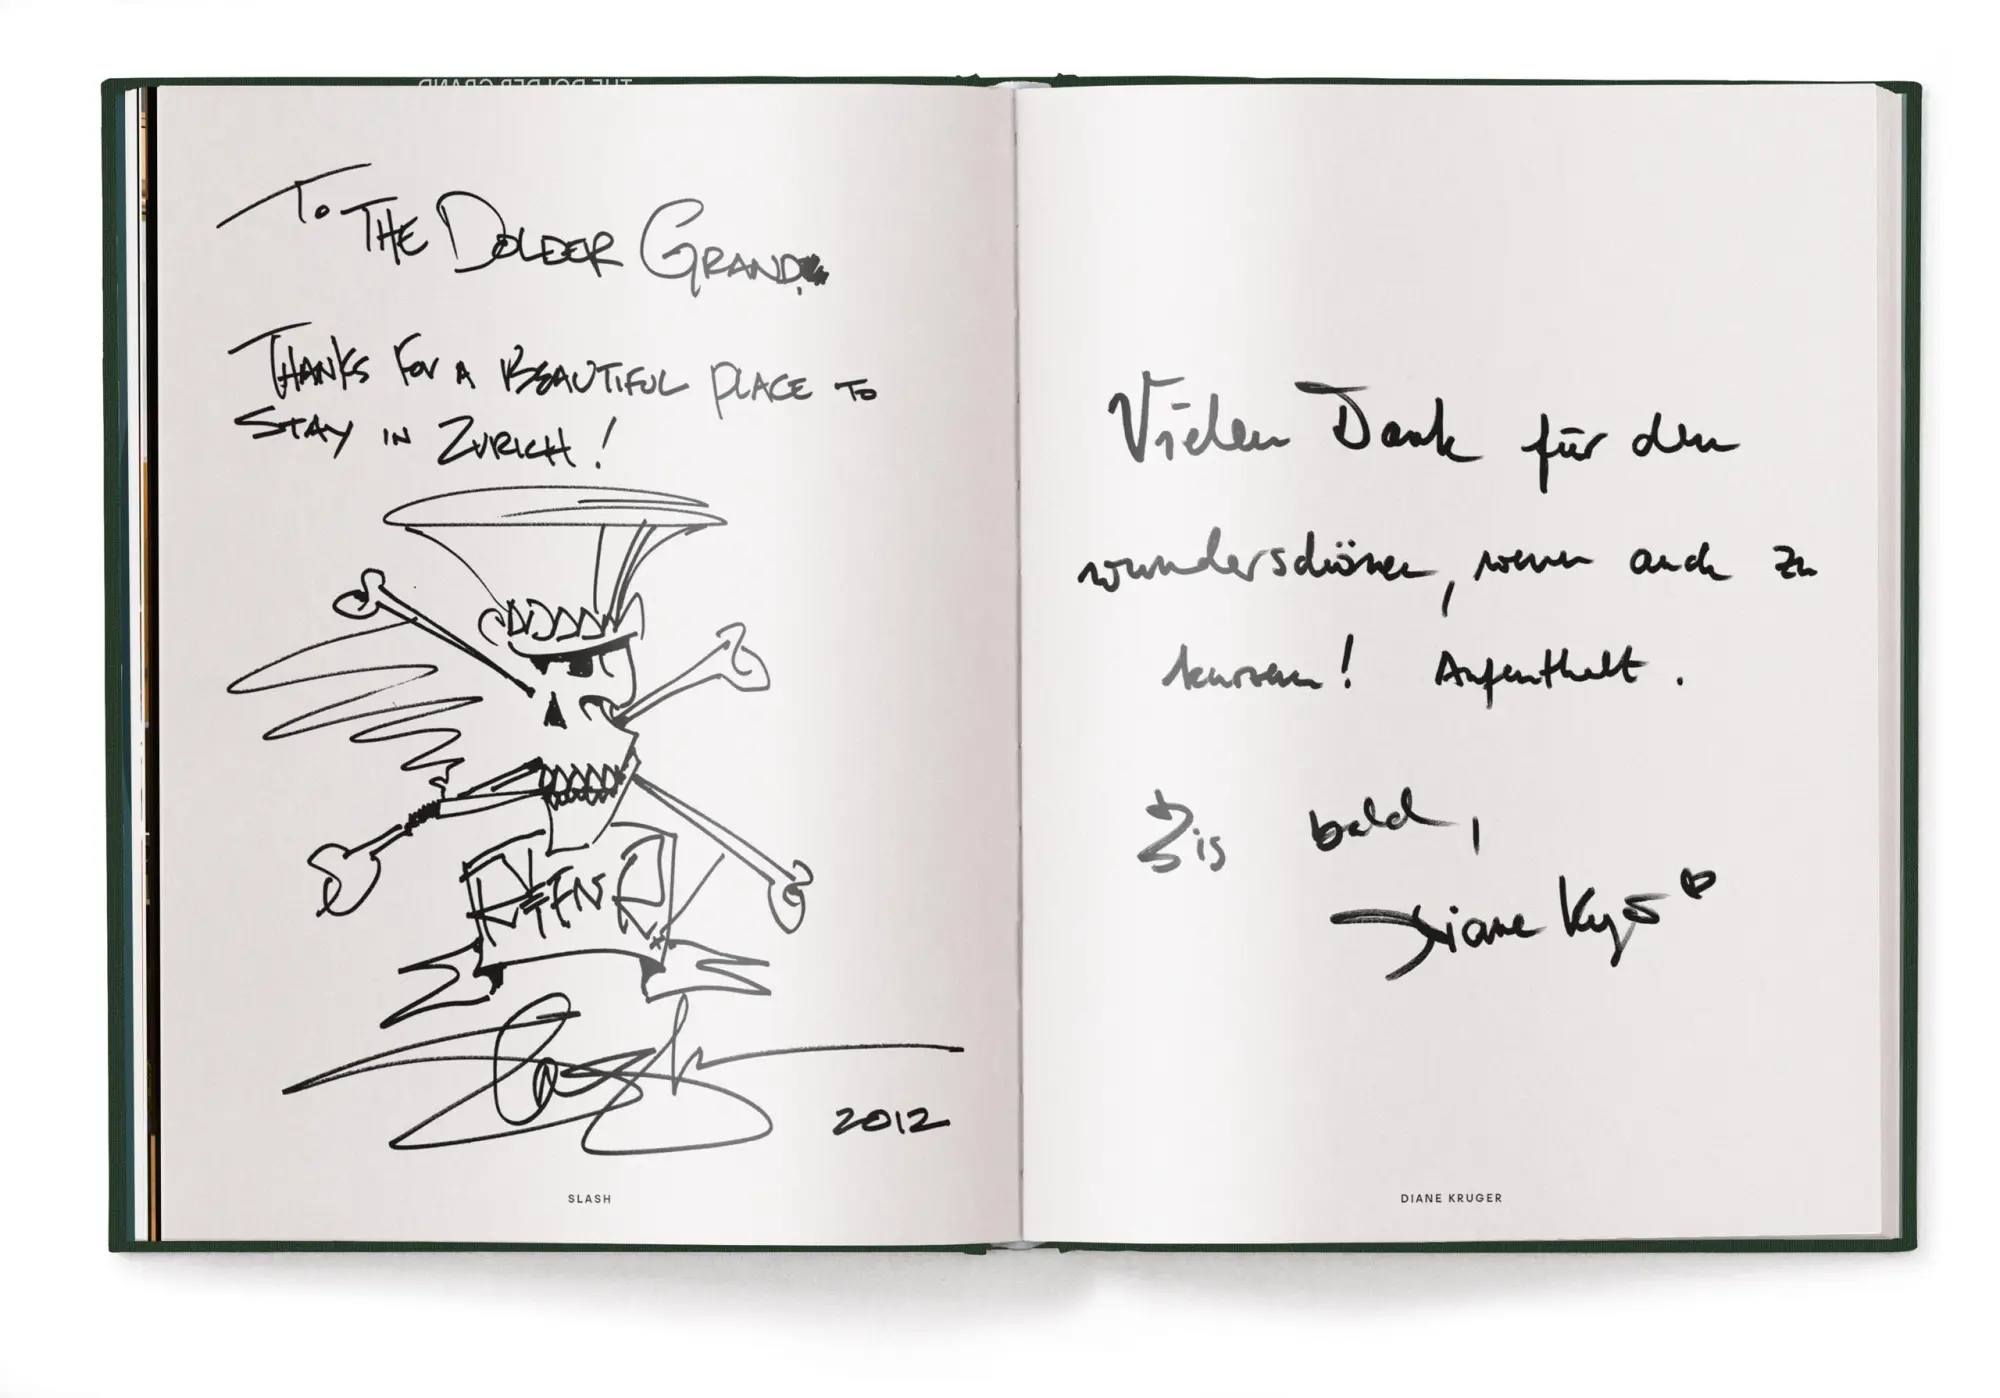 THE DOLDER GRAND
To THE DOLDER GRAND.
THANKS FOR A BEAUTIFUL PLACE TO
STAY IN ZURICH!
2012
SLASH
Vielen Dank für den
wunderschönen, wenn auch zu
kurzen! Aufenthalt.
Bis bald,
Diane
DIANE KRUGER